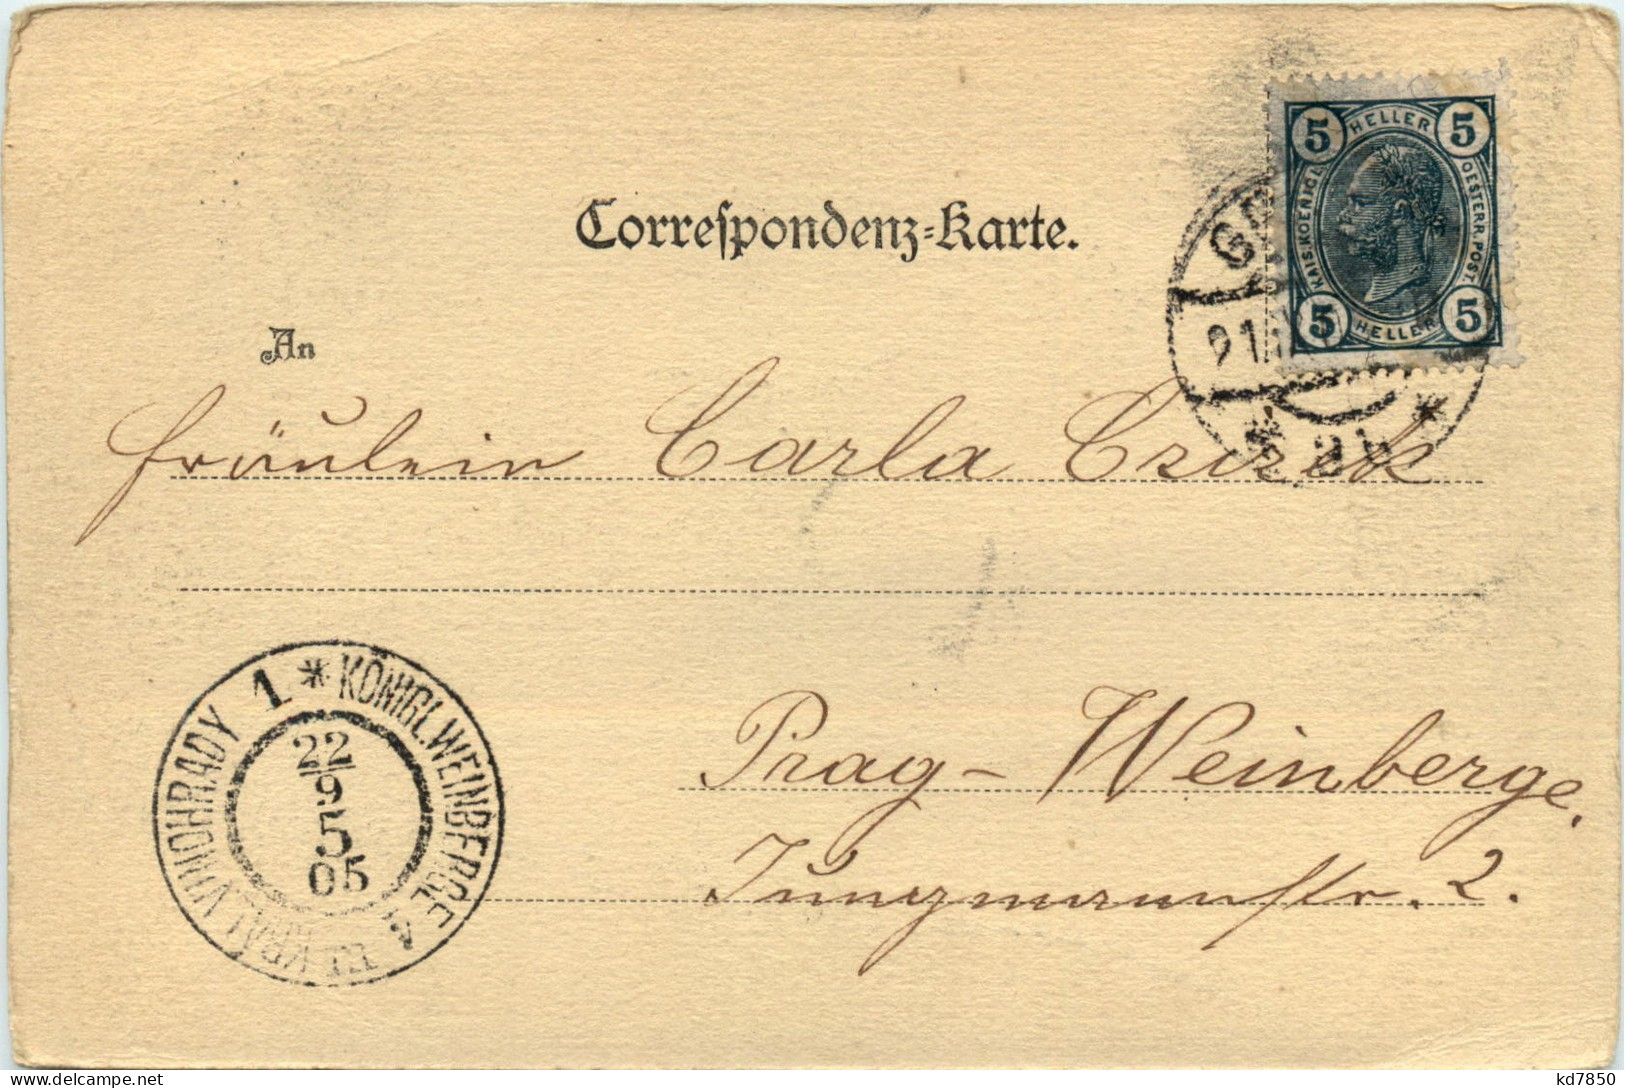 Correspondenz-Karte.
HELLER
5 5
KAIS. KOENIGL. OESTERR. POST.
5 5
HELLER
21
An
Fräulein Carla Czizek
1 * KÖNIGL. WEINBERGE 1 * KRÁL. VINOHRADY
22
9
5
05
Prag-Weinberge.
Jungmannstr. 2.
kd7850